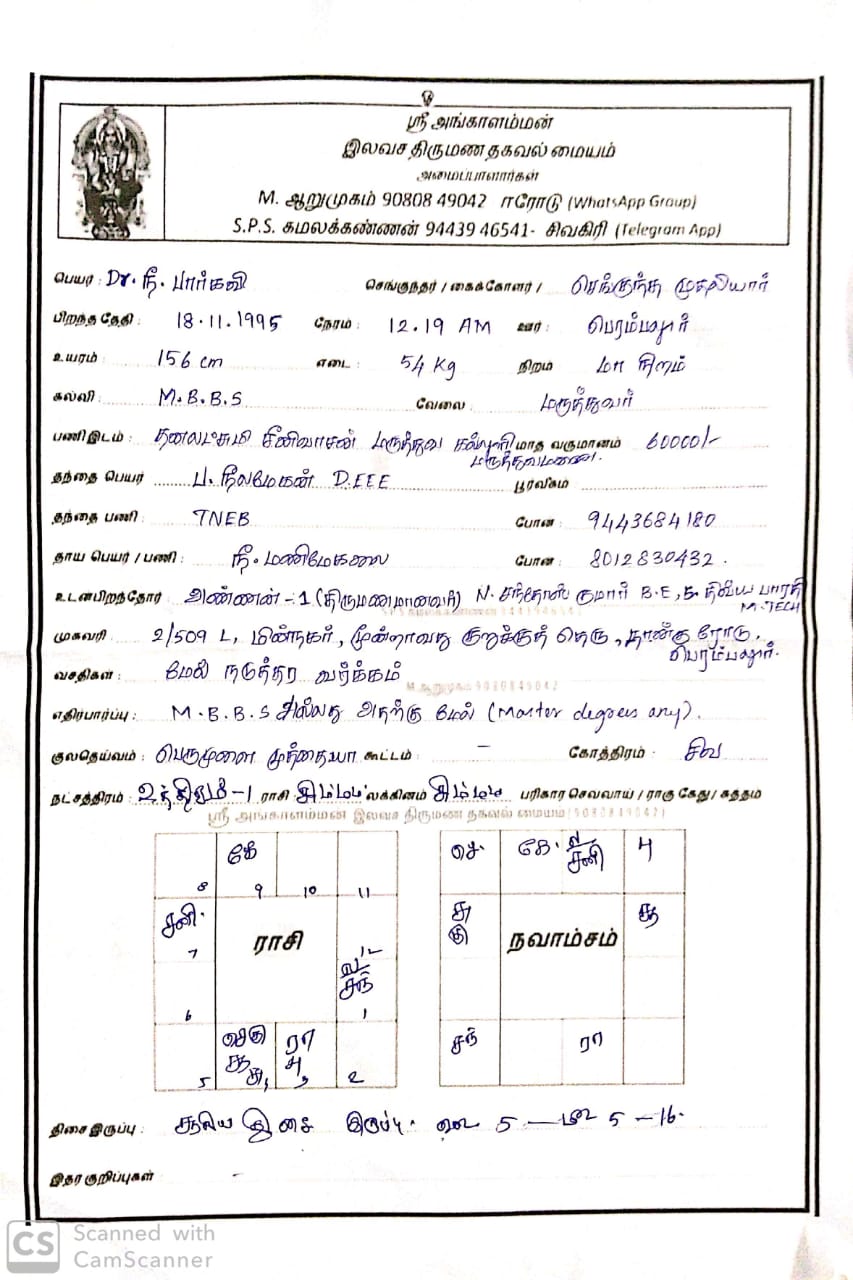 ஸ்ரீ அங்காளம்மன்
இலவச திருமண தகவல் மையம்
அமைப்பாளார்கள்
M. ஆறுமுகம் 90808 49042 ஈரோடு (WhatsApp Group)
S.P.S. கமலக்கண்ணன் 94439 46541- சிவகிரி (Telegram App)
பெயர் : Dr. நீ. பார்கவி செங்குந்தர் / கைக்கோளர் / செங்குந்த முதலியார்
பிறந்த தேதி : 18.11.1995 நேரம் : 12.19 AM ஊர் : பெரம்பலூர்
உயரம் : 156 cm எடை : 54 Kg நிறம் மா நிறம்
கல்வி : M.B.B.S வேலை : மருத்துவர்
பணி இடம் : தனலட்சுமி சீனிவாசன் மருத்துவ கல்லூரி மாத வருமானம் 60000/-
மருத்துவமனை.
தந்தை பெயர் ப. நீலமேகன் D.EEE பூர்வீகம்
தந்தை பணி : TNEB போன் : 9443684180
தாய பெயர் / பணி : நீ. மணிமேகலை போன் : 8012830432.
உடன்பிறந்தோர் : அண்ணன் - 1 (திருமணமானவர்) N. சந்தோஷ் குமார் B.E, S. திவ்ய பாரதி
M.TECH
முகவரி : 2/509 L, மின்நகர், மூன்றாவது குறுக்குத் தெரு, நான்கு ரோடு,
பெரம்பலூர்.
வசதிகள் : மேல் நடுத்தர வர்க்கம்
M.ஆறுமுகம் 9080849042
எதிர்பார்ப்பு : M.B.B.S அல்லது அதற்கு மேல் (Master degrees any).
குலதெய்வம் : பெருமுளை முத்தையா கூட்டம் : - கோத்திரம் : சிவ
நட்சத்திரம் : உத்திரம் - 1 ராசி சிம்மம் லக்கினம் சிம்மம் பரிகார செவ்வாய் / ராகு கேது / சுத்தம்
ஸ்ரீ அங்காளம்மன் இலவச திருமண தகவல் மையம் (9080849042)
கே செ. கே. ல சனி 4
8 9 10 11
சனி. சு கு சூ
ராசி நவாம்சம்
7 12
ல சந்
6 1
செ கு ரா சந் ரா
சூ சு
5 3 2
திசை இருப்பு : சூரிய திசை இருப்பு. 5 - 5 - 16.
இதர குறிப்புகள் -
CS Scanned with
CamScanner